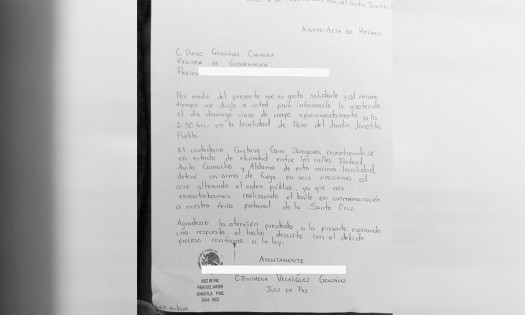 Asunto: Acta de Hechos
C. Diego González Carmona
Regidor de Gobernación
Presen
Por medio del presente me es grato saludarle y al mismo
tiempo me dirijo a usted para informarle lo acontecido
el día domingo cinco de mayo aproximadamente a la
1:30 hrs. en la localidad de Paso del Jardín, Jonotla
Puebla.
El ciudadano Gustavo Cano encontrándose
en estado de ebriedad entre las calles Rafael
Avila Camacho y Aldama de esta misma localidad,
detonó un arma de fuego en seis ocasiones al
aire alterando el orden público, ya que nos
encontrábamos realizando el baile en conmemoración
a nuestra feria patronal de la Santa Cruz.
Agradezco la atención prestada a la presente, esperando
una respuesta al hecho descrito con el debido
proceso conforme a la ley.
Atentamente
C. Velazquez González
Juez de Paz
JUEZ DE PAZ
PASO DEL JARDIN
JONOTLA PUE.